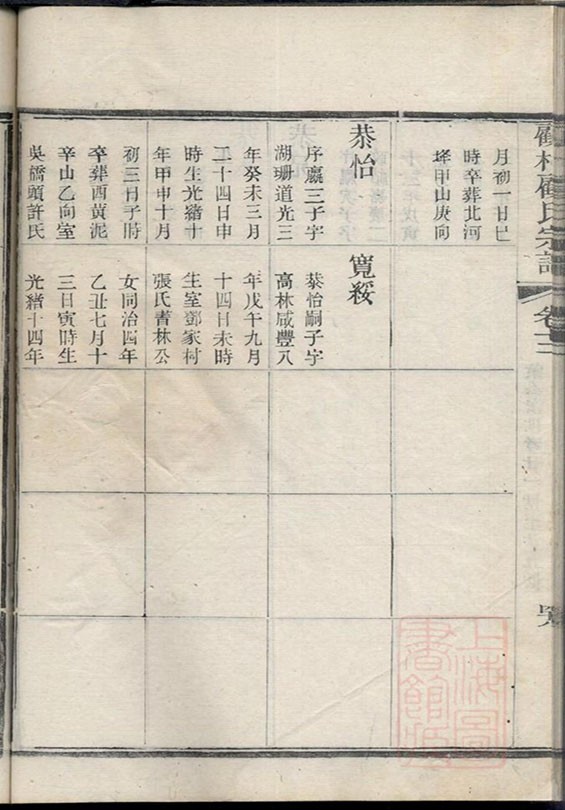 顧村顧氏宗譜
卷三
月初一日巳
時卒葬北河
垾甲山庚向
恭怡
序瀛三子字
湖珊道光三
年癸未三月
二十四日申
時生光緒十
年甲申十月
初三日子時
卒葬酉黃泥
辛山乙向室
吳橋頭許氏
寬綏
恭怡嗣子字
高林咸豐八
年戊午九月
十四日未時
生室鄧家村
張氏青林公
女同治四年
乙丑七月十
三日寅時生
光緒十四年
上海圖
書館藏